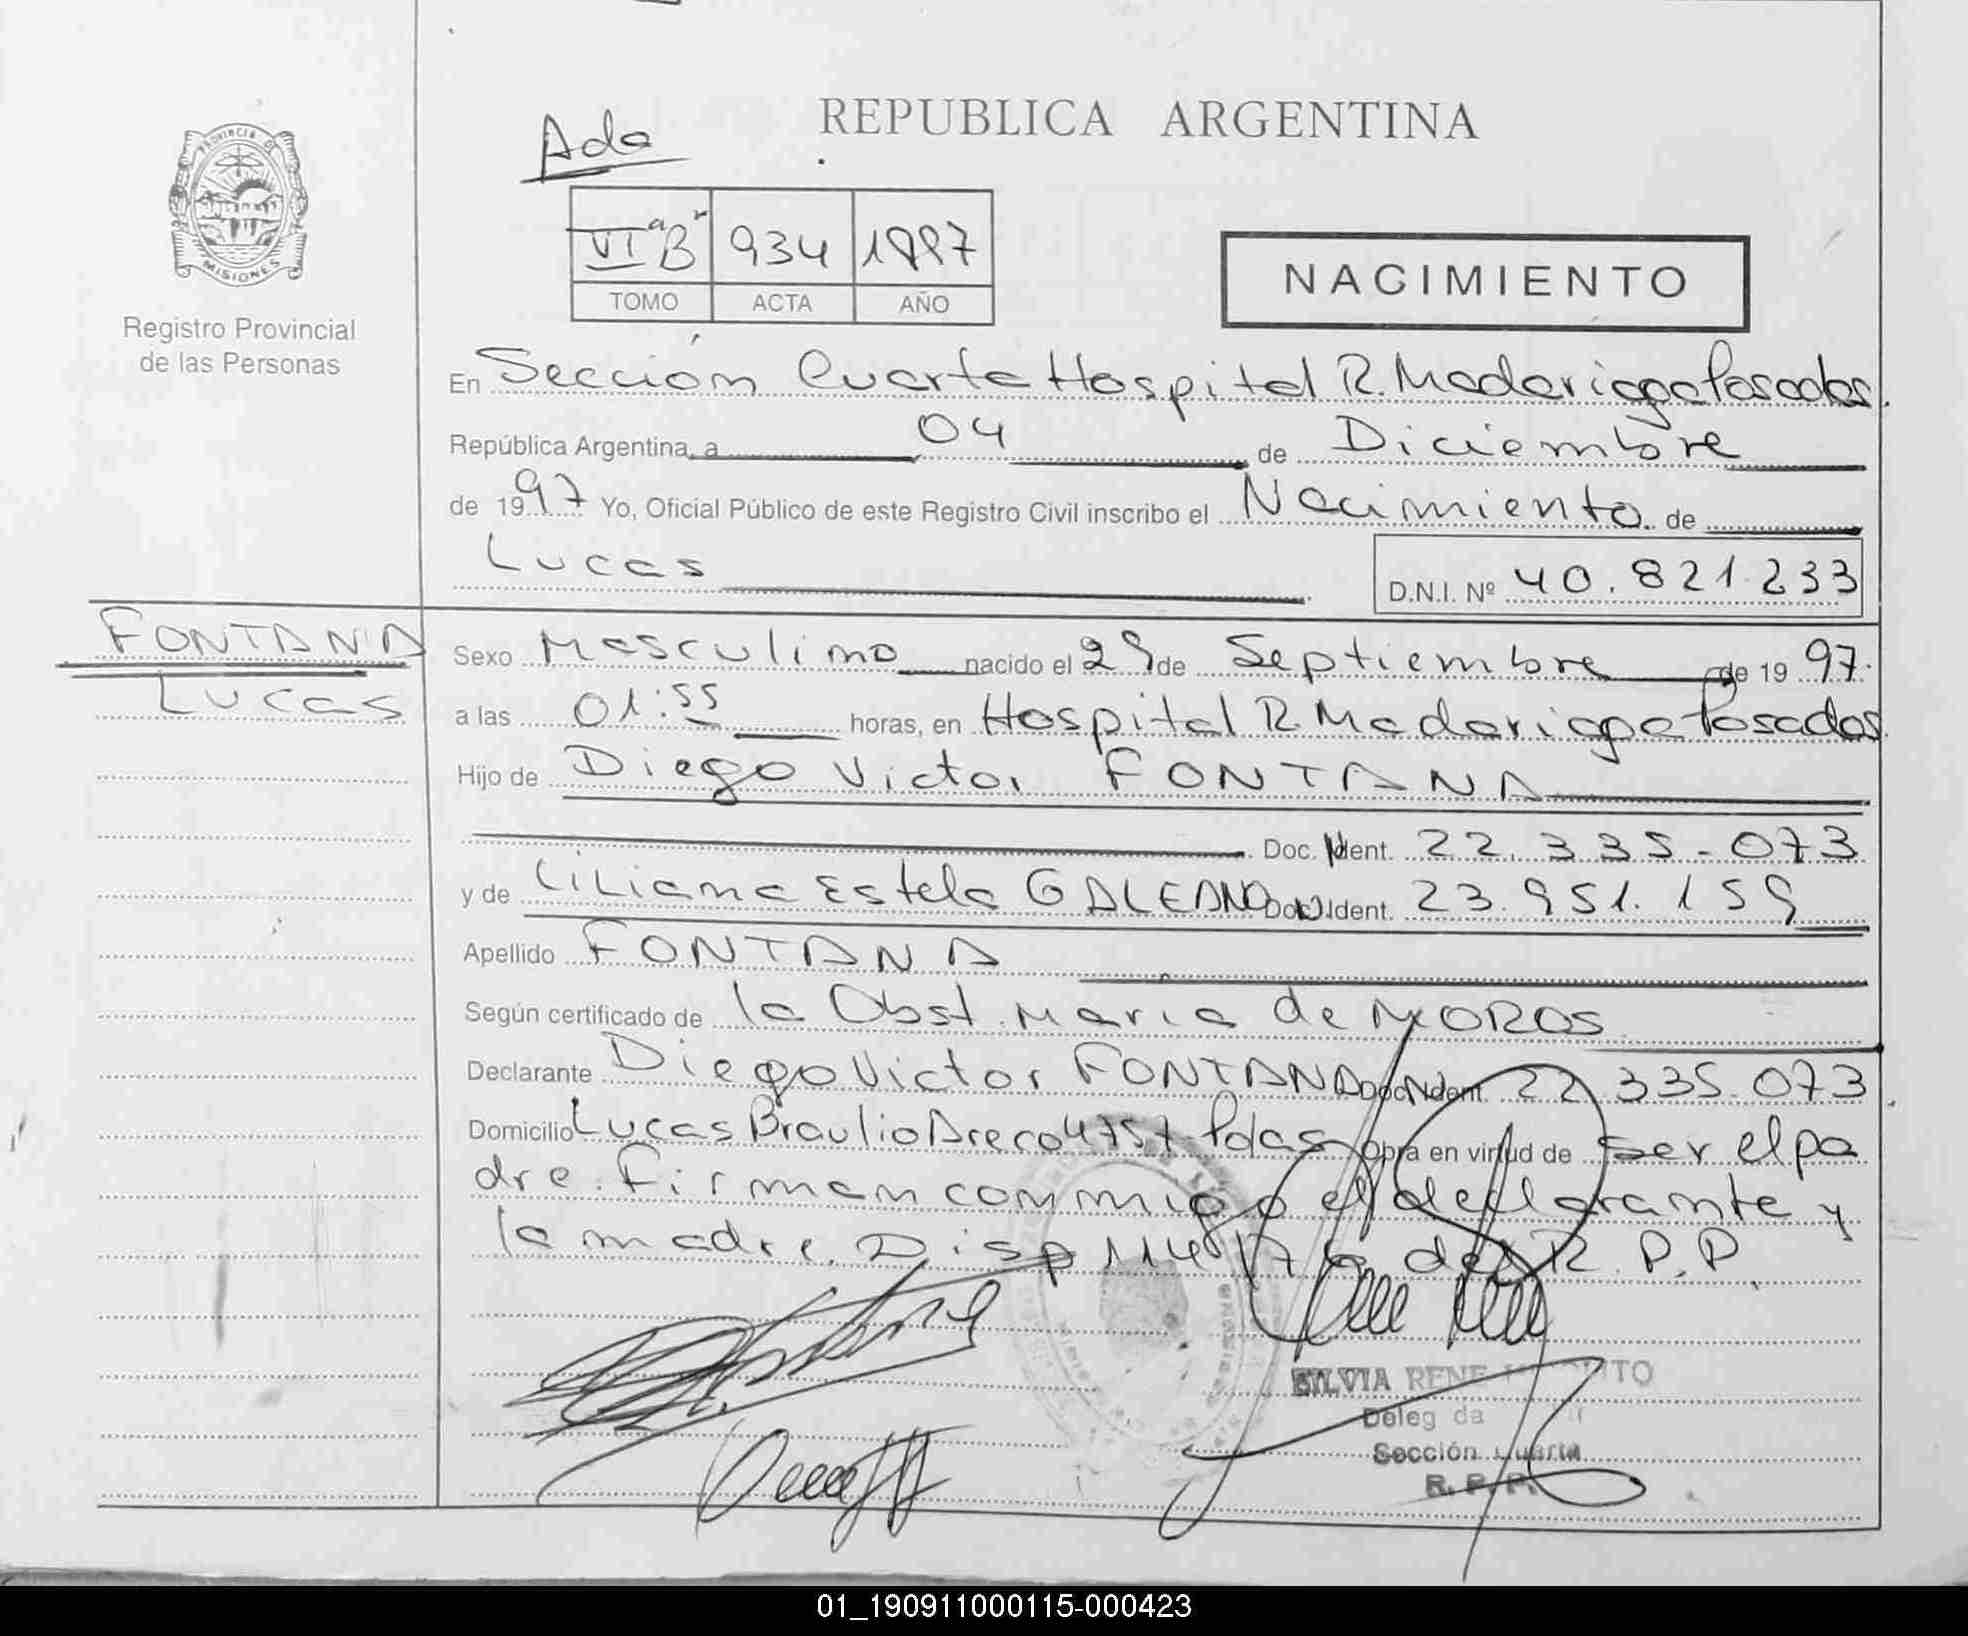 PROVINCIA DE
MISIONES
Registro Provincial
de las Personas
REPUBLICA ARGENTINA
Ada
VIª "B" 934 1997
TOMO ACTA AÑO
NACIMIENTO
En Sección Cuarta Hospital R. Madariaga Posadas.
República Argentina, a 04 de Diciembre
de 1997 Yo, Oficial Público de este Registro Civil inscribo el Nacimiento de
Lucas D.N.I. Nº 40.821.233
FONTANA
Lucas
Sexo Masculino nacido el 29 de Septiembre de 1997.
a las 01:55 horas, en Hospital R. Madariaga Posadas
Hijo de Diego Victor FONTANA
Doc. Ident. 22.335.073
y de Liliana Estela GALEANO Doc. Ident. 23.951.159
Apellido FONTANA
Según certificado de la Obst. Maria de MOROS
Declarante Diego Victor FONTANA Doc. Ident. 22.335.073
Domicilio Lucas Braulio Areco 4757 Pdas Obra en virtud de ser el pa
dre. Firman conmigo el declarante y
la madre. Disp 114/76 del R.P.P.
SILVIA RENE
Sección Cuarta
R. P. P.
01_190911000115-000423